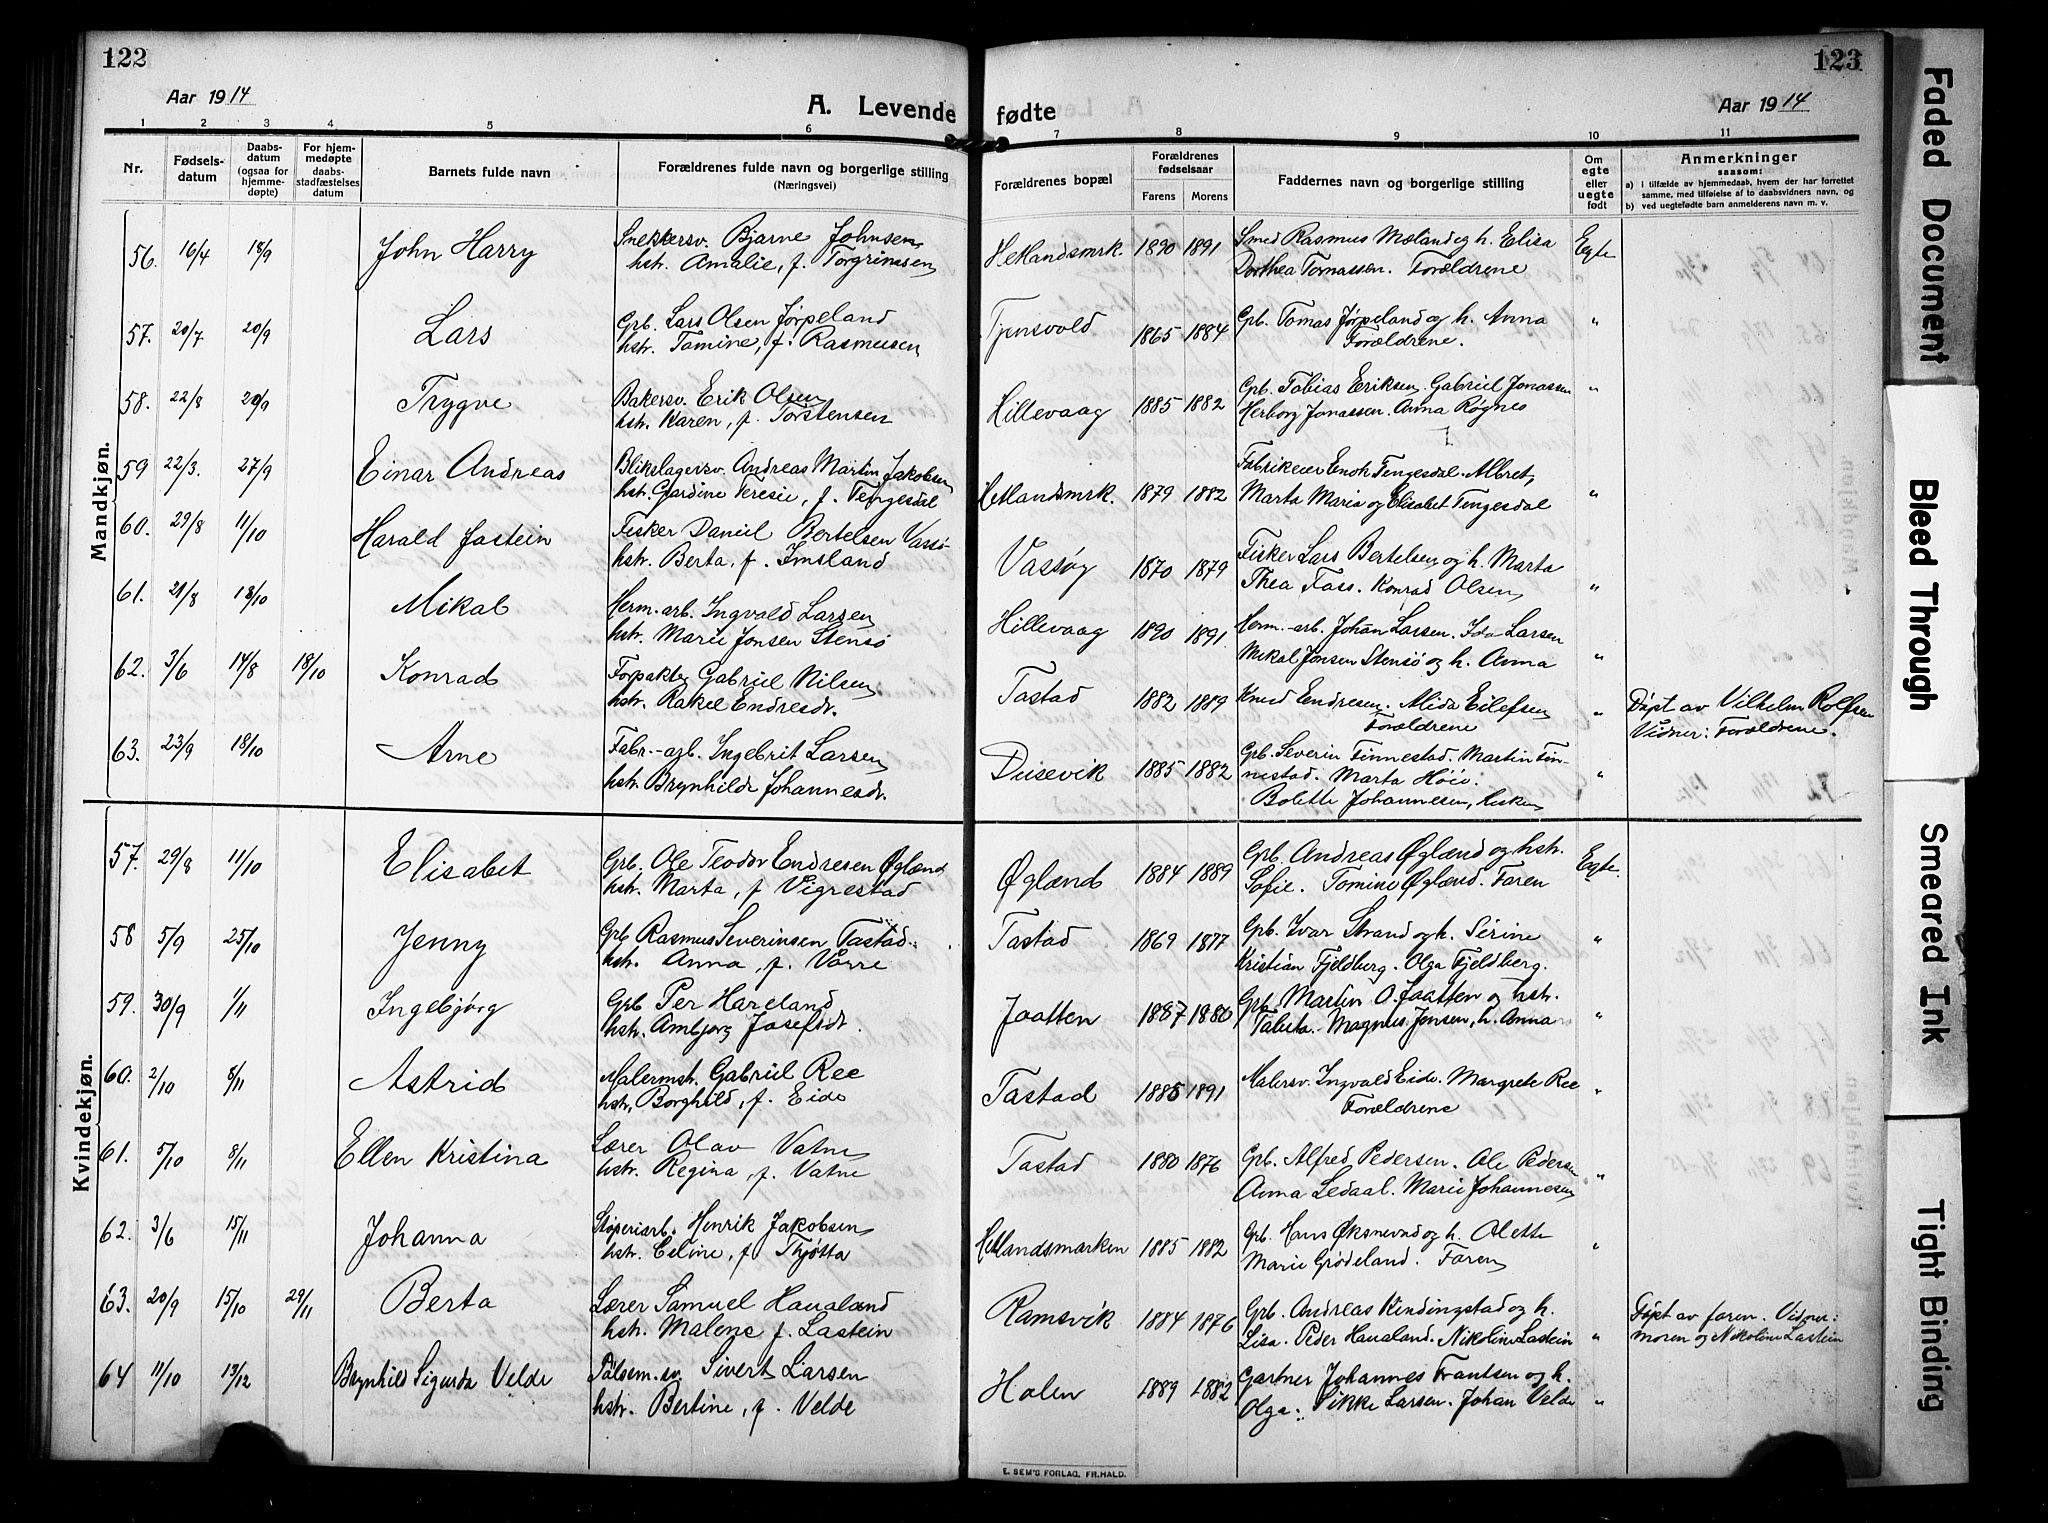 122
Aar 1914
A. Levende
1 2 3 4 5 6
Nr.
Fødsels-
datum
Daabs-
datum
(ogsaa for
hjemme-
døpte)
For hjem-
medøpte
daabs-
stadfæstelses
datum
Barnets fulde navn
Forældrenes fulde navn og borgerlige stilling
(Næringsvei)
Mandkjøn.
56. 16/4 18/9 John Harry Snekkersv. Bjarne Johnsen
hstr. Amalie, f. Torgrimsen
57. 20/7 20/9 Lars Grb. Lars Olsen Jørpeland
hstr. Tomine, f. Rasmusen
58. 22/8 20/9 Trygve Bakersv. Erik Olsen
hstr. Karen, f. Torstensen
59 22/3. 27/9 Einar Andreas Blikslagersv. Andreas Martin Jakobsen
hstr. Gjardine Teresie, f. Tengesdal
60. 29/8 11/10 Harald Jostein Fisker Daniel Bertelsen Vassø
hstr. Berta, f. Imsland
61. 21/8 18/10 Mikal Herm. arb. Ingvald Larsen
hstr. Marie Jonsen Stensø
62. 3/6 14/8 18/10 Konrad Forpakter Gabriel Nilsen
hstr. Rakel Endresdr.
63. 23/9 18/10 Arne Fabr.-arb. Ingebrit Larsen
hstr. Brynhilde Johannesdr.
Kvindekjøn.
57. 29/8 11/10 Elisabet Grb. Ole Teodor Endresen Øglænd
hstr. Marta, f. Vigrestad
58 5/9 25/10 Jenny Grb. Rasmus Severinsen Tastad
hstr. Anna, f. Varre
59. 30/9 1/11 Ingebjørg Grb Per Hareland
hstr. Ambjørg Josefsdr.
60. 2/10 8/11 Astrid Malermstr. Gabriel Ree
hstr. Borghild, f. Eide
61. 5/10 8/11 Ellen Kristina Lærer Olav Vatne
hstr. Regina, f. Vatne
62. 3/6 15/11 Johanna Støperiarb. Henrik Jakobsen
hstr. Celine, f. Thjøtta
63. 20/9 15/10 29/11 Berta Lærer Samuel Haualand
hstr. Malene f. Lastein
64 11/10 13/12 Brynhild Sigurda Velde Pølsem.sv. Sivert Larsen
hstr. Bertine, f. Velde
123
Aar 1914
fødte
7 8 9 10 11
Forældrenes bopæl
Forældrenes
fødselsaar
Farens Morens
Faddernes navn og borgerlige stilling
Om
egte
eller
uegte
født
Anmerkninger
saasom:
a) i tilfælde av hjemmedaab, hvem der har forrettet
samme, med tilføielse af to daabsvidners navn, og
b) ved uegtefødte barn anmelderens navn m. v.
Hetlandsmrk. 1890 1891 Smed Rasmus Mæland og h. Elisa Egte
Dorthea Tomassen. Forældrene
Tjensvold 1865 1884 Grb. Tomas Jørpeland og h. Anna "
Forældrene.
Hillevaag 1885 1882 Grb. Tobias Eriksen. Gabriel Jonassen "
Herborg Jonassen. Anna Røgnes
Hetlandsmrk. 1879 1882 Fabrikeier Enok Tengesdal. Albret,
Marta Maria og Elisabet Tengesdal "
Vassøy 1870 1879 Fisker Lars Bertelsen og h. Marta
Thea Foss. Konrad Olsen "
Hillevaag 1890 1891 Herm.-arb. Johan Larsen. Ida Larsen
Mikal Jonsen Stensø og h. Anna "
Tastad 1882 1889 Knud Endresen. Alida Eilefsen " Døpt av Vilhelm Rolfsen
Forældrene Vidner: Forældrene.
Dusevik 1885 1882 Grb. Severin Finnestad. Martin Fin-
nestad. Marta Høie. "
Bolette Johannesen,
Øglænd 1884 1889 Grb. Andreas Øglænd og hstr. Egte.
Sofie. Tomine Øglænd. Faren
Tastad 1869 1877 Grb. Ivar Strand og h. Serine "
Kristian Fjeldberg. Olga Fjeldberg.
Jaatten 1887 1880 Grb. Martin O. Jaatten og hstr.
Tabita. Magnus Jonsen, h. Anna "
Tastad 1885 1891 Malersv. Ingvald Eide. Margrete Ree "
Forældrene
Tastad 1880 1876 Grb. Alfred Pedersen. Ole Pedersen
Anna Ledaal. Marie Johannesen "
Hetlandsmarken 1885 1882 Grb. Hans Øksnevad og h. Olette "
Marie Grødeland. Faren
Ramsvik 1884 1876 Grb. Andreas Kindingstad og h. Døpt av faren. Vidner:
Lisa. Peder Haualand. Nikoline Lastein " moren og Nikoline Lastein
Holen 1889 1882 Gartner Johannes Frantsen og h.
Olga. Sikke Larsen. Johan Velde "
E. SEM'S FORLAG, FR.HALD.
Faded Document
Bleed Through
Smeared Ink
Tight Binding